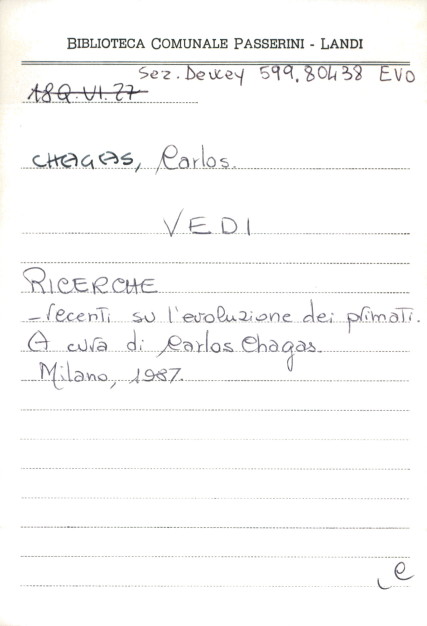 BIBLIOTECA COMUNALE PASSERINI - LANDI
Sez. Dewey 599.80438 EVO
18Q.VI.27
CHAGAS, Carlos.
VEDI
RICERCHE
- recenti su l'evoluzione dei primati.
A cura di Carlos Chagas.
Milano, 1987.